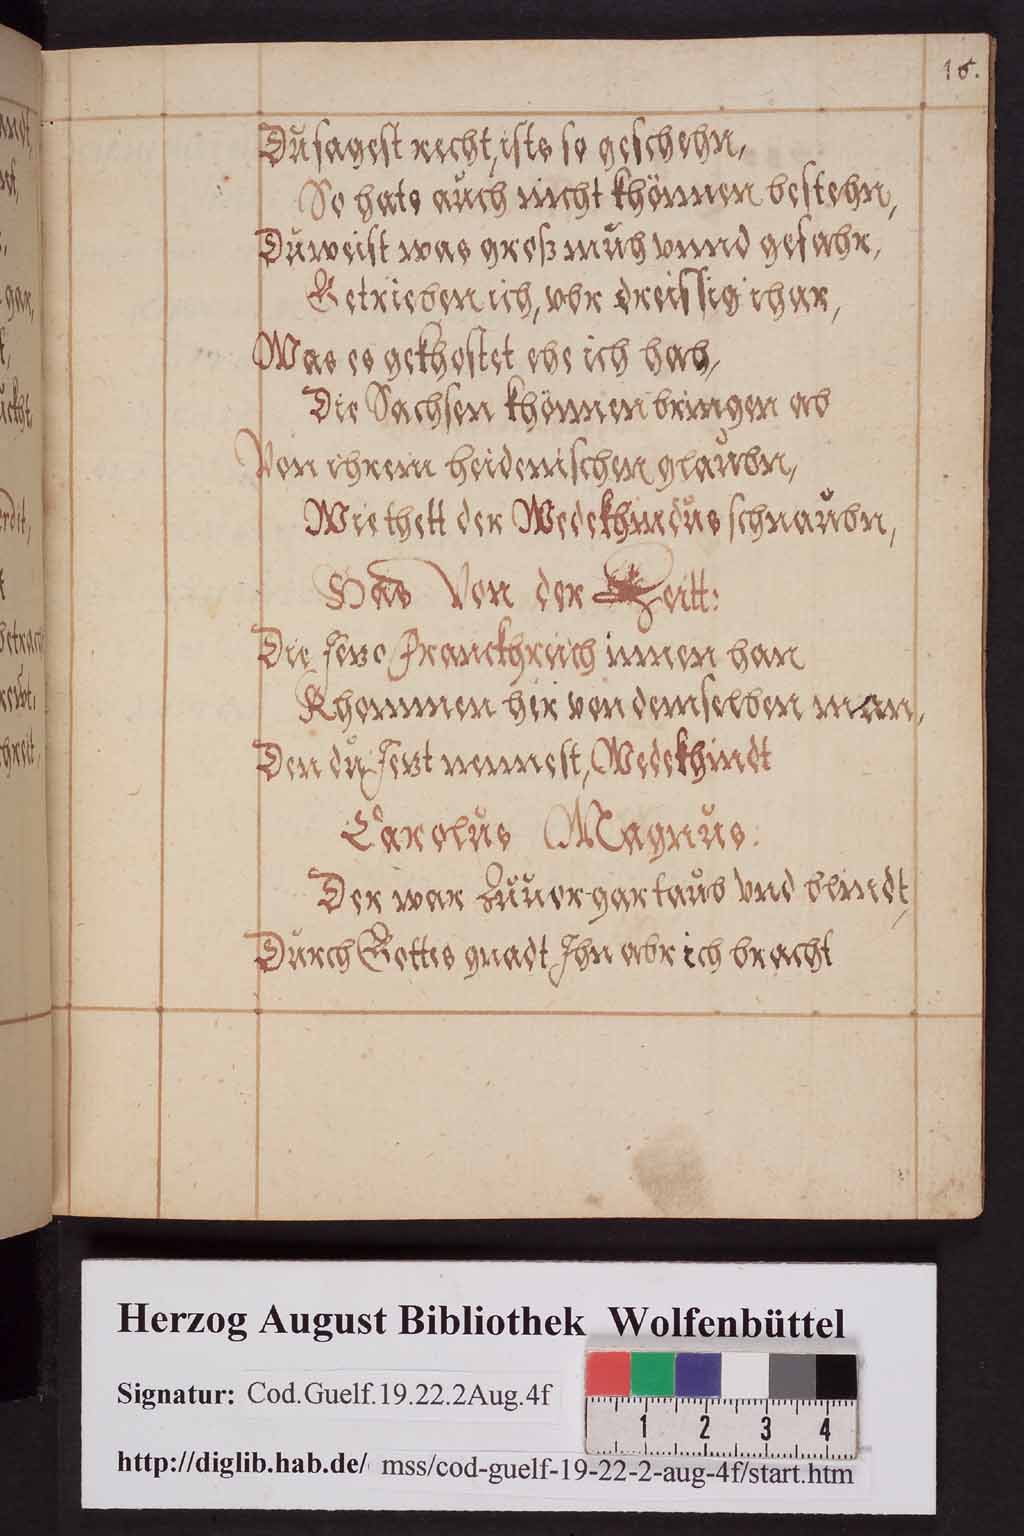 16.
Du sagest recht, ists so geschehn,
So hats auch nicht khönnen bestehn,
Du weist was groß müh vnnd gefahr,
Getrieben ich, vbr dreissig ihar,
Was es gekhostet ehe ich hab,
Die Sachsen khönnen bringen ab
Von ihrem heidenischen glaubn,
Wie thett der Wedekhindus schnaubn,
Has Von der Zeitt:
Die Jetzo Franckhreich innen han
Khommen her von demselben man,
Den du Jetzt nennest, Wedekhindt
Carolus Magnus.
Der war Zuuor gar taub vnd blindt,
Durch Gottes gnadt Ihn abr ich bracht
Herzog August Bibliothek Wolfenbüttel
Signatur: Cod.Guelf.19.22.2Aug.4f
http://diglib.hab.de/ mss/cod-guelf-19-22-2-aug-4f/start.htm
1 2 3 4